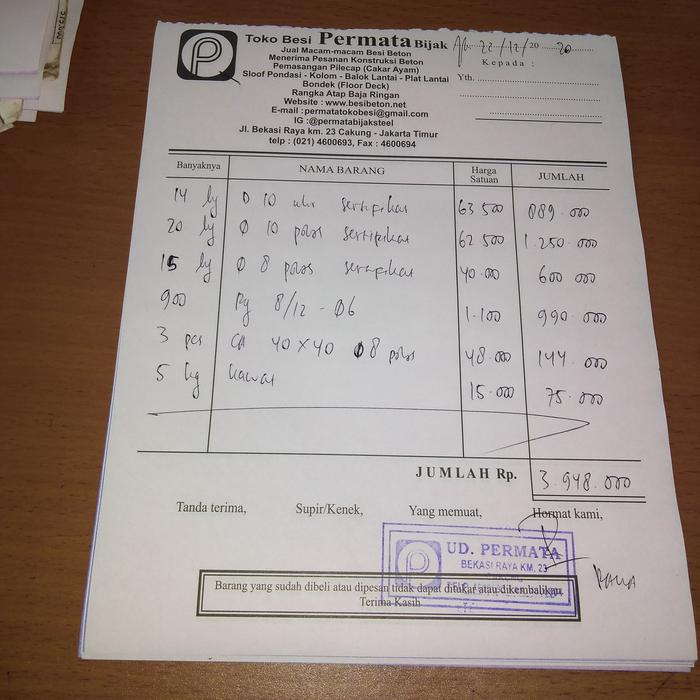 Toko Besi Permata Bijak
22/12/20 20
Kepada :
Jual Macam-macam Besi Beton
Menerima Pesanan Konstruksi Beton
Pemasangan Pilecap (Cakar Ayam)
Yth.
Sloof Pondasi - Kolom - Balok Lantai - Plat Lantai
Bondek (Floor Deck)
Rangka Atap Baja Ringan
Website : www.besibeton.net
E-mail : permatatokobesi@gmail.com
IG : @permatabijaksteel
Jl. Bekasi Raya km. 23 Cakung - Jakarta Timur
telp : (021) 4600693, Fax : 4600694
Banyaknya NAMA BARANG Harga Satuan JUMLAH
14 D 10 ulir sertifikat 63.500 889.000
20 Ø 10 polos sertifikat 62.500 1.250.000
15 Ø 8 polos sertifikat 40.000 600.000
900 8/12 - Ø6 1.100 990.000
3 pcs CA 40x40 Ø8 polos 48.000 144.000
5 kg kawat 15.000 75.000
JUMLAH Rp. 3.948.000
Tanda terima, Supir/Kenek, Yang memuat, Hormat kami,
UD. PERMATA
BEKASI RAYA KM. 23
Barang yang sudah dibeli atau dipesan tidak dapat ditukar atau dikembalikan
Terima Kasih